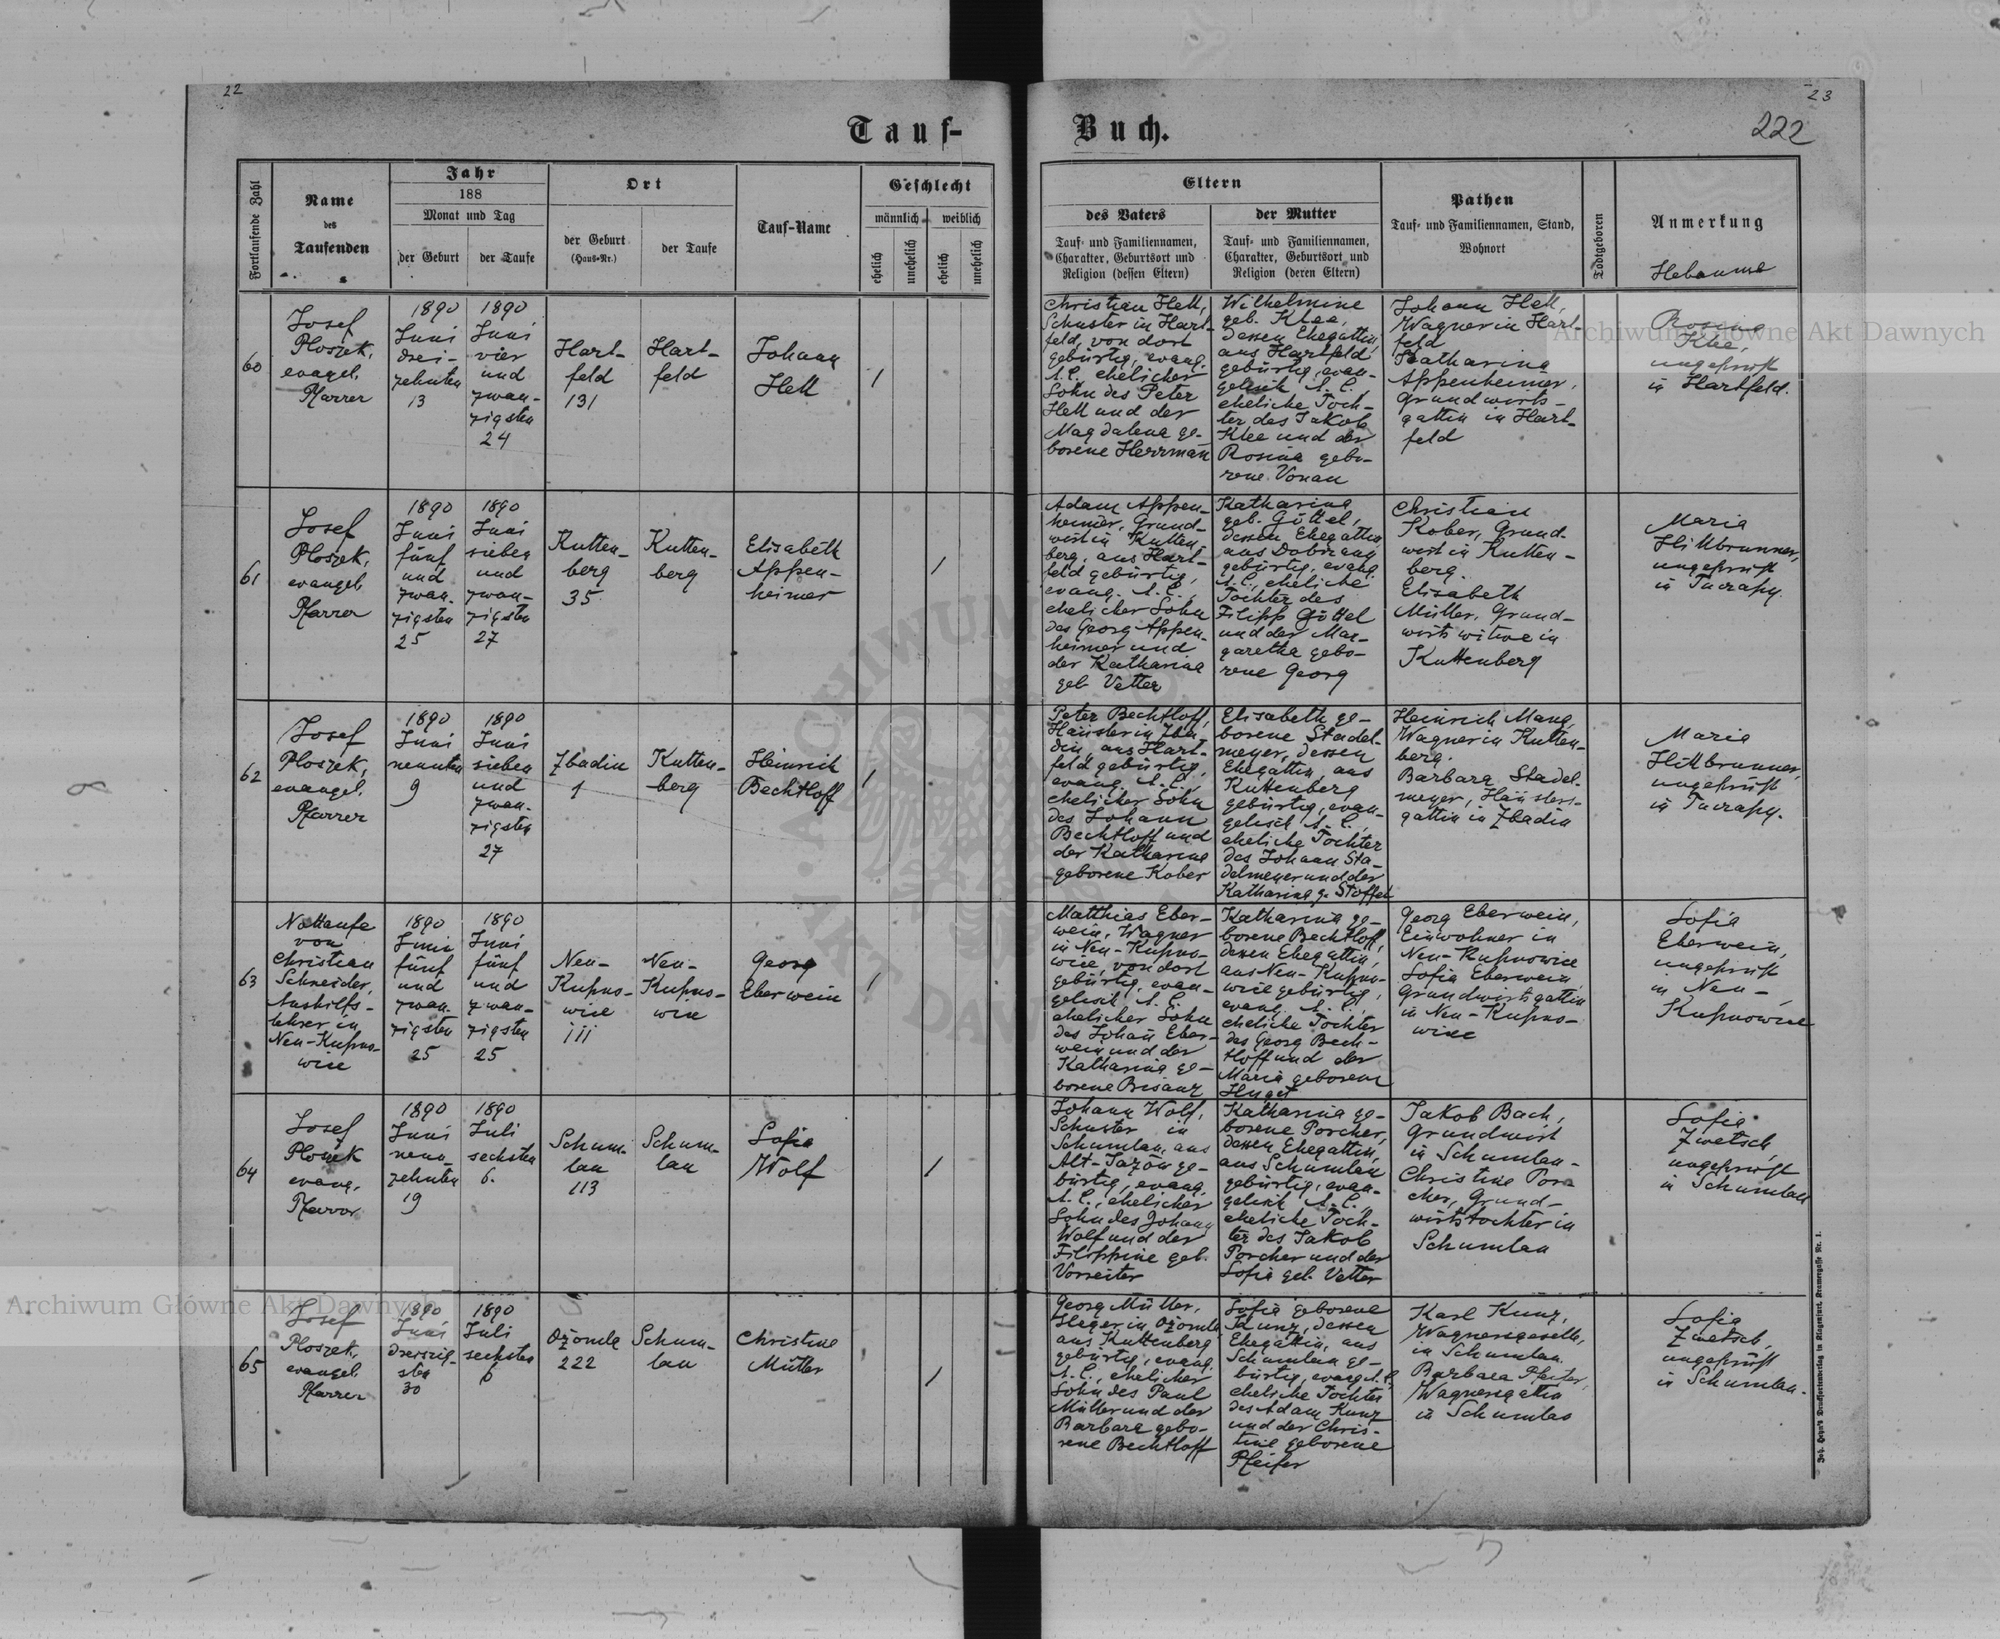 22
23
222
Tauf-
Buch.
Fortlaufende Zahl
Name
des
Taufenden
Jahr
188
Monat und Tag
der Geburt
der Taufe
Ort
der Geburt
(Haus-Nr.)
der Taufe
Tauf-Name
Geschlecht
männlich
weiblich
ehelich
unehelich
ehelich
unehelich
Eltern
des Vaters
Tauf- und Familiennamen,
Charakter, Geburtsort und
Religion (dessen Eltern)
der Mutter
Tauf- und Familiennamen,
Charakter, Geburtsort und
Religion (deren Eltern)
Pathen
Tauf- und Familiennamen, Stand,
Wohnort
Todtgeboren
Anmerkung
Hebamme
60
Josef
Ploszek,
evangel.
Pfarrer
1890
Juni
drei-
zehnten
13
1890
Juni
vier
und
zwan-
zigsten
24
Hart-
feld
131
Hart-
feld
Johann
Hell
1
Christian Hell,
Schuster in Hart-
feld, von dort
gebürtig, evang.
A.C. ehelicher
Sohn des Peter
Hell und der
Magdalena ge-
borene Herrman
Wilhelmine
geb. Klee,
dessen Ehegattin,
aus Hartfeld
gebürtig, evan-
gelisch A.C.
eheliche Toch-
ter des Jakob
Klee und der
Rosina gebo-
rene Vonau
Johann Hell,
Wagner in Hart-
feld
Katharina
Appenheimer,
Grundwirts-
gattin in Hart-
feld
Rosina
Klee,
ungeprüft
in Hartfeld.
61
Josef
Ploszek,
evangel.
Pfarrer
1890
Juni
fünf
und
zwan-
zigsten
25
1890
Juni
sieben
und
zwan-
zigsten
27
Kutten-
berg
35
Kutten-
berg
Elisabeth
Appen-
heimer
1
Adam Appen-
heimer, Grund-
wirt in Kutten-
berg, aus Hart-
feld gebürtig,
evang. A.C.,
ehelicher Sohn
des Georg Appen-
heimer und
der Katharina
geb. Vetter
Katharina
geb. Göttel,
dessen Ehegattin
aus Dobrzany
gebürtig, evang.
A.C., eheliche
Tochter des
Filipp Göttel
und der Mar-
garetha gebo-
rene Georg
Christian
Kober, Grund-
wirt in Kutten-
berg.
Elisabeth
Müller, Grund-
wirtswitwe in
Kuttenberg
Maria
Hillbrunner,
ungeprüft
in Tuczapy.
62
Josef
Ploszek,
evangel.
Pfarrer
1890
Juni
neunten
9
1890
Juni
sieben
und
zwan-
zigsten
27
Zbadin
1
Kutten-
berg
Heinrich
Bechtloff
1
Peter Bechtloff,
Häusler in Zba-
din, aus Hart-
feld gebürtig,
evang. A.C.,
ehelicher Sohn
des Johann
Bechtloff und
der Katharina
geborene Kober
Elisabeth ge-
borene Stadel-
meyer, dessen
Ehegattin, aus
Kuttenberg
gebürtig, evan-
gelisch A.C.,
eheliche Tochter
des Johann Sta-
delmeyer und der
Katharina g. Stoffel
Heinrich Mang,
Wagner in Kutten-
berg.
Barbara Stadel-
meyer, Häuslers-
gattin in Zbadin
Maria
Hillbrunner,
ungeprüft
in Tuczapy.
63
Nottaufe
von
Christian
Schneider,
Aushilfs-
lehrer in
Neu-Kupno-
wice
1890
Juni
fünf
und
zwan-
zigsten
25
1890
Juni
fünf
und
zwan-
zigsten
25
Neu-
Kupno-
wice
111
Neu-
Kupno-
wice
Georg
Eberwein
1
Matthias Eber-
wein, Wagner
in Neu-Kupno-
wice, von dort
gebürtig, evan-
gelisch A.C.
ehelicher Sohn
des Johan Eber-
wein und der
Katharina ge-
borene Bisanz
Katharina ge-
borene Bechtloff,
dessen Ehegattin,
aus Neu-Kupno-
wice gebürtig,
evang. A.C.,
eheliche Tochter
des Georg Bech-
tloff und der
Maria geborene
Huget
Georg Eberwein,
Einwohner in
Neu-Kupnowice
Sofia Eberwein,
Grundwirtsgattin
in Neu-Kupno-
wice
Sofia
Eberwein,
ungeprüft
in Neu-
Kupnowice
64
Josef
Ploszek
evang.
Pfarrer
1890
Juni
neun-
zehnten
19
1890
Juli
sechsten
6.
Schum-
lau
113
Schum-
lau
Sofia
Wolf
1
Johann Wolf,
Schuster in
Schumlau, aus
Alt-Jazów ge-
bürtig, evang.
A.C., ehelicher
Sohn des Johann
Wolf und der
Filippine geb.
Vorreiter
Katharina ge-
borene Porcher,
dessen Ehegattin,
aus Schumlau
gebürtig, evan-
gelisch A.C.,
eheliche Toch-
ter des Jakob
Porcher und der
Sofia geb. Vetter
Jakob Bach,
Grundwirt
in Schumlau-
Christine Por-
cher, Grund-
wirtstochter in
Schumlau
Sofia
Zwetsch,
ungeprüft
in Schumlau
65
Josef
Ploszek,
evangel.
Pfarrer
1890
Juni
dreiszig-
sten
30
1890
Juli
sechsten
6
Ożomla
222
Schum-
lau
Christine
Müller
1
Georg Müller,
Heger in Ożomla
aus Kuttenberg
gebürtig, evang.
A.C., ehelicher
Sohn des Paul
Müller und der
Barbara gebo-
rene Bechtloff
Sofia geborene
Kunz, dessen
Ehegattin, aus
Schumlau ge-
bürtig, evang. A.C.
eheliche Tochter
des Adam Kunz
und der Chris-
tine geborene
Pfeifer
Karl Kunz,
Wagnergeselle,
in Schumlau.
Barbara Pfeifer,
Wagnersgattin
in Schumlau
Sofia
Zwetsch,
ungeprüft
in Schumlau.
Joh. Leon's Drucksortenverlag in Klagenfurt, Kramergasse Nr. 1.
Archiwum Główne Akt Dawnych
Archiwum Główne Akt Dawnych